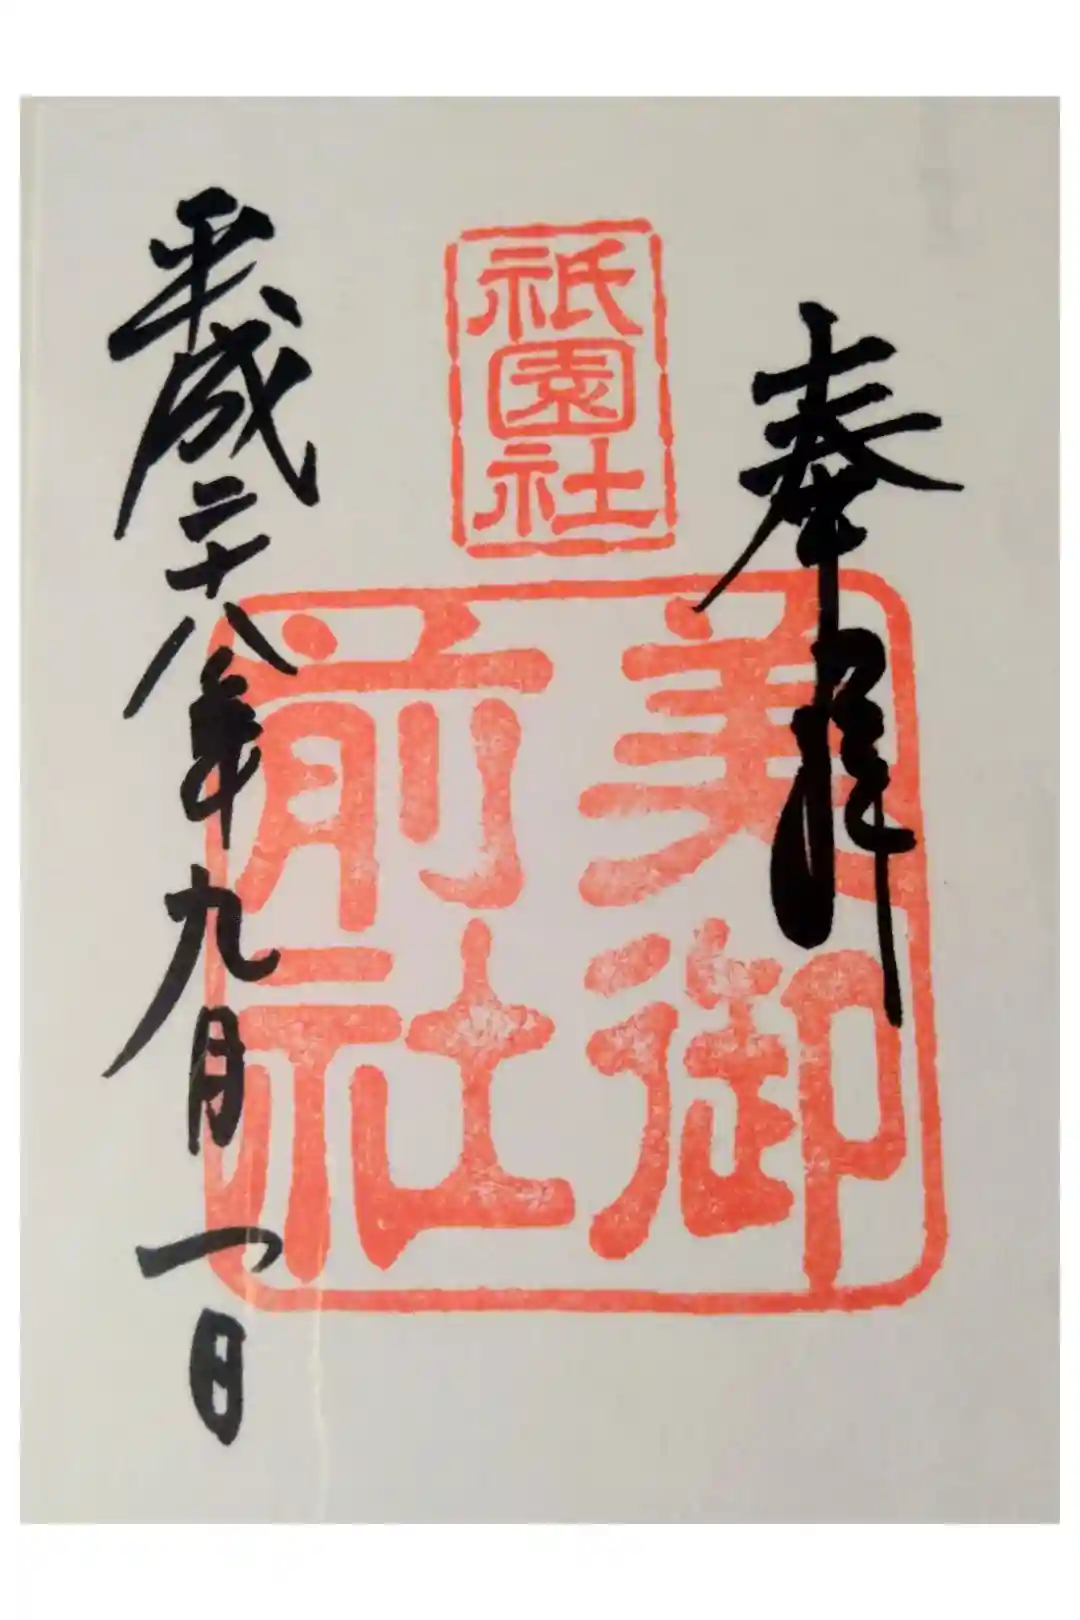 奉拝
祇園社
美御前社
平成二十八年九月一日